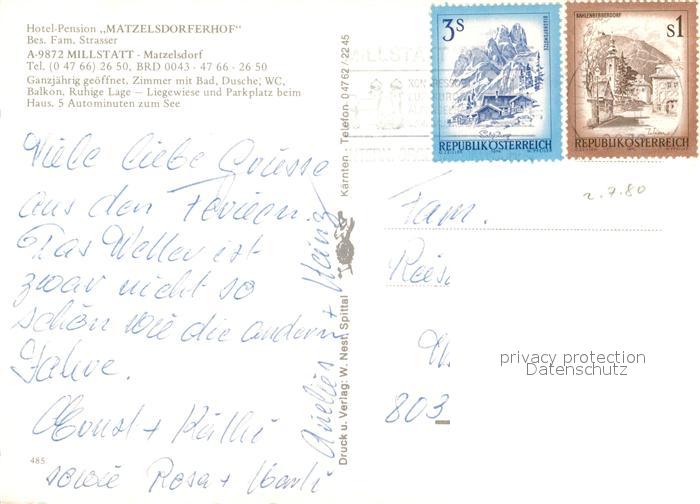 Hotel-Pension „MATZELSDORFERHOF“
Bes. Fam. Strasser
A-9872 MILLSTATT - Matzelsdorf
Tel. (0 47 66) 26 50, BRD 0043 - 47 66 - 26 50
Ganzjährig geöffnet, Zimmer mit Bad, Dusche, WC,
Balkon, Ruhige Lage — Liegewiese und Parkplatz beim
Haus. 5 Autominuten zum See
Viele liebe Grüsse
aus den Ferien.
Das Wetter ist
zwar nicht so
schön wie die andern
Jahre.
Ernst + Käthi
sowie Rosa +
Anelies + Heinz
485
Druck u. Verlag: W. Nestl Spittal
Kärnten - Telefon 0 47 62 / 22 45
MILLSTATT
3s
REPUBLIK ÖSTERREICH
KAHLENBERGERDORF
s1
REPUBLIK ÖSTERREICH
2.7.80
Fam.
803
privacy protection
Datenschutz